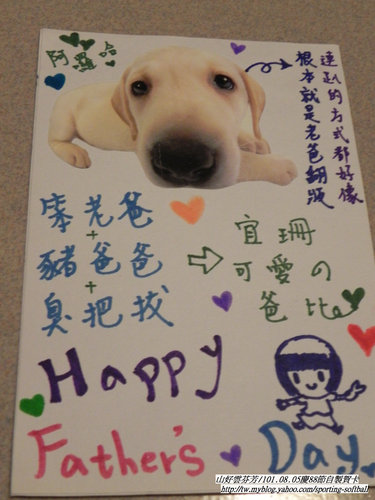 阿羅哈
連趴的方式都好像
根本就是老爸翻版
笨老爸
+
豬爸爸
+
臭把拔
宜珊
可愛の
爸比
Happy
Father's Day
山好雲芬芳/101.08.05慶88節自製賀卡
http://tw.myblog.yahoo.com/sporting-softball